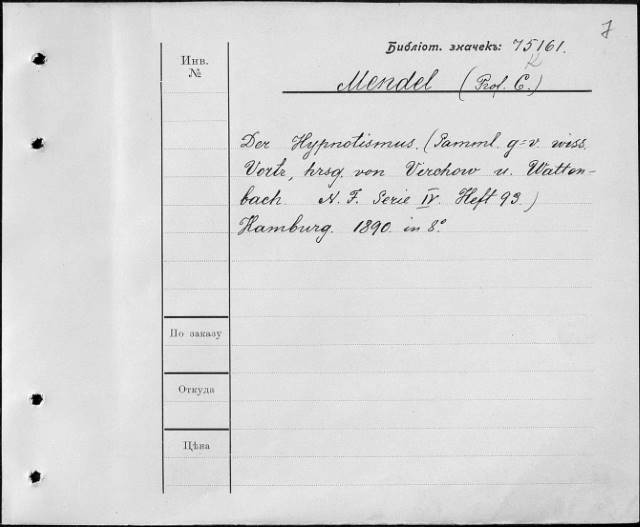 7
Библіот. значекъ: 75161.
K
Mendel (Prof. E.)
Инв.
№
Der Hypnotismus. (Samml. g=v. wiss.
Vortr, hrsg. von Virchow u. Watten-
bach. N. F. Serie IV. Heft 93.)
Hamburg. 1890. in 8.°
По заказу
Откуда
Цѣна